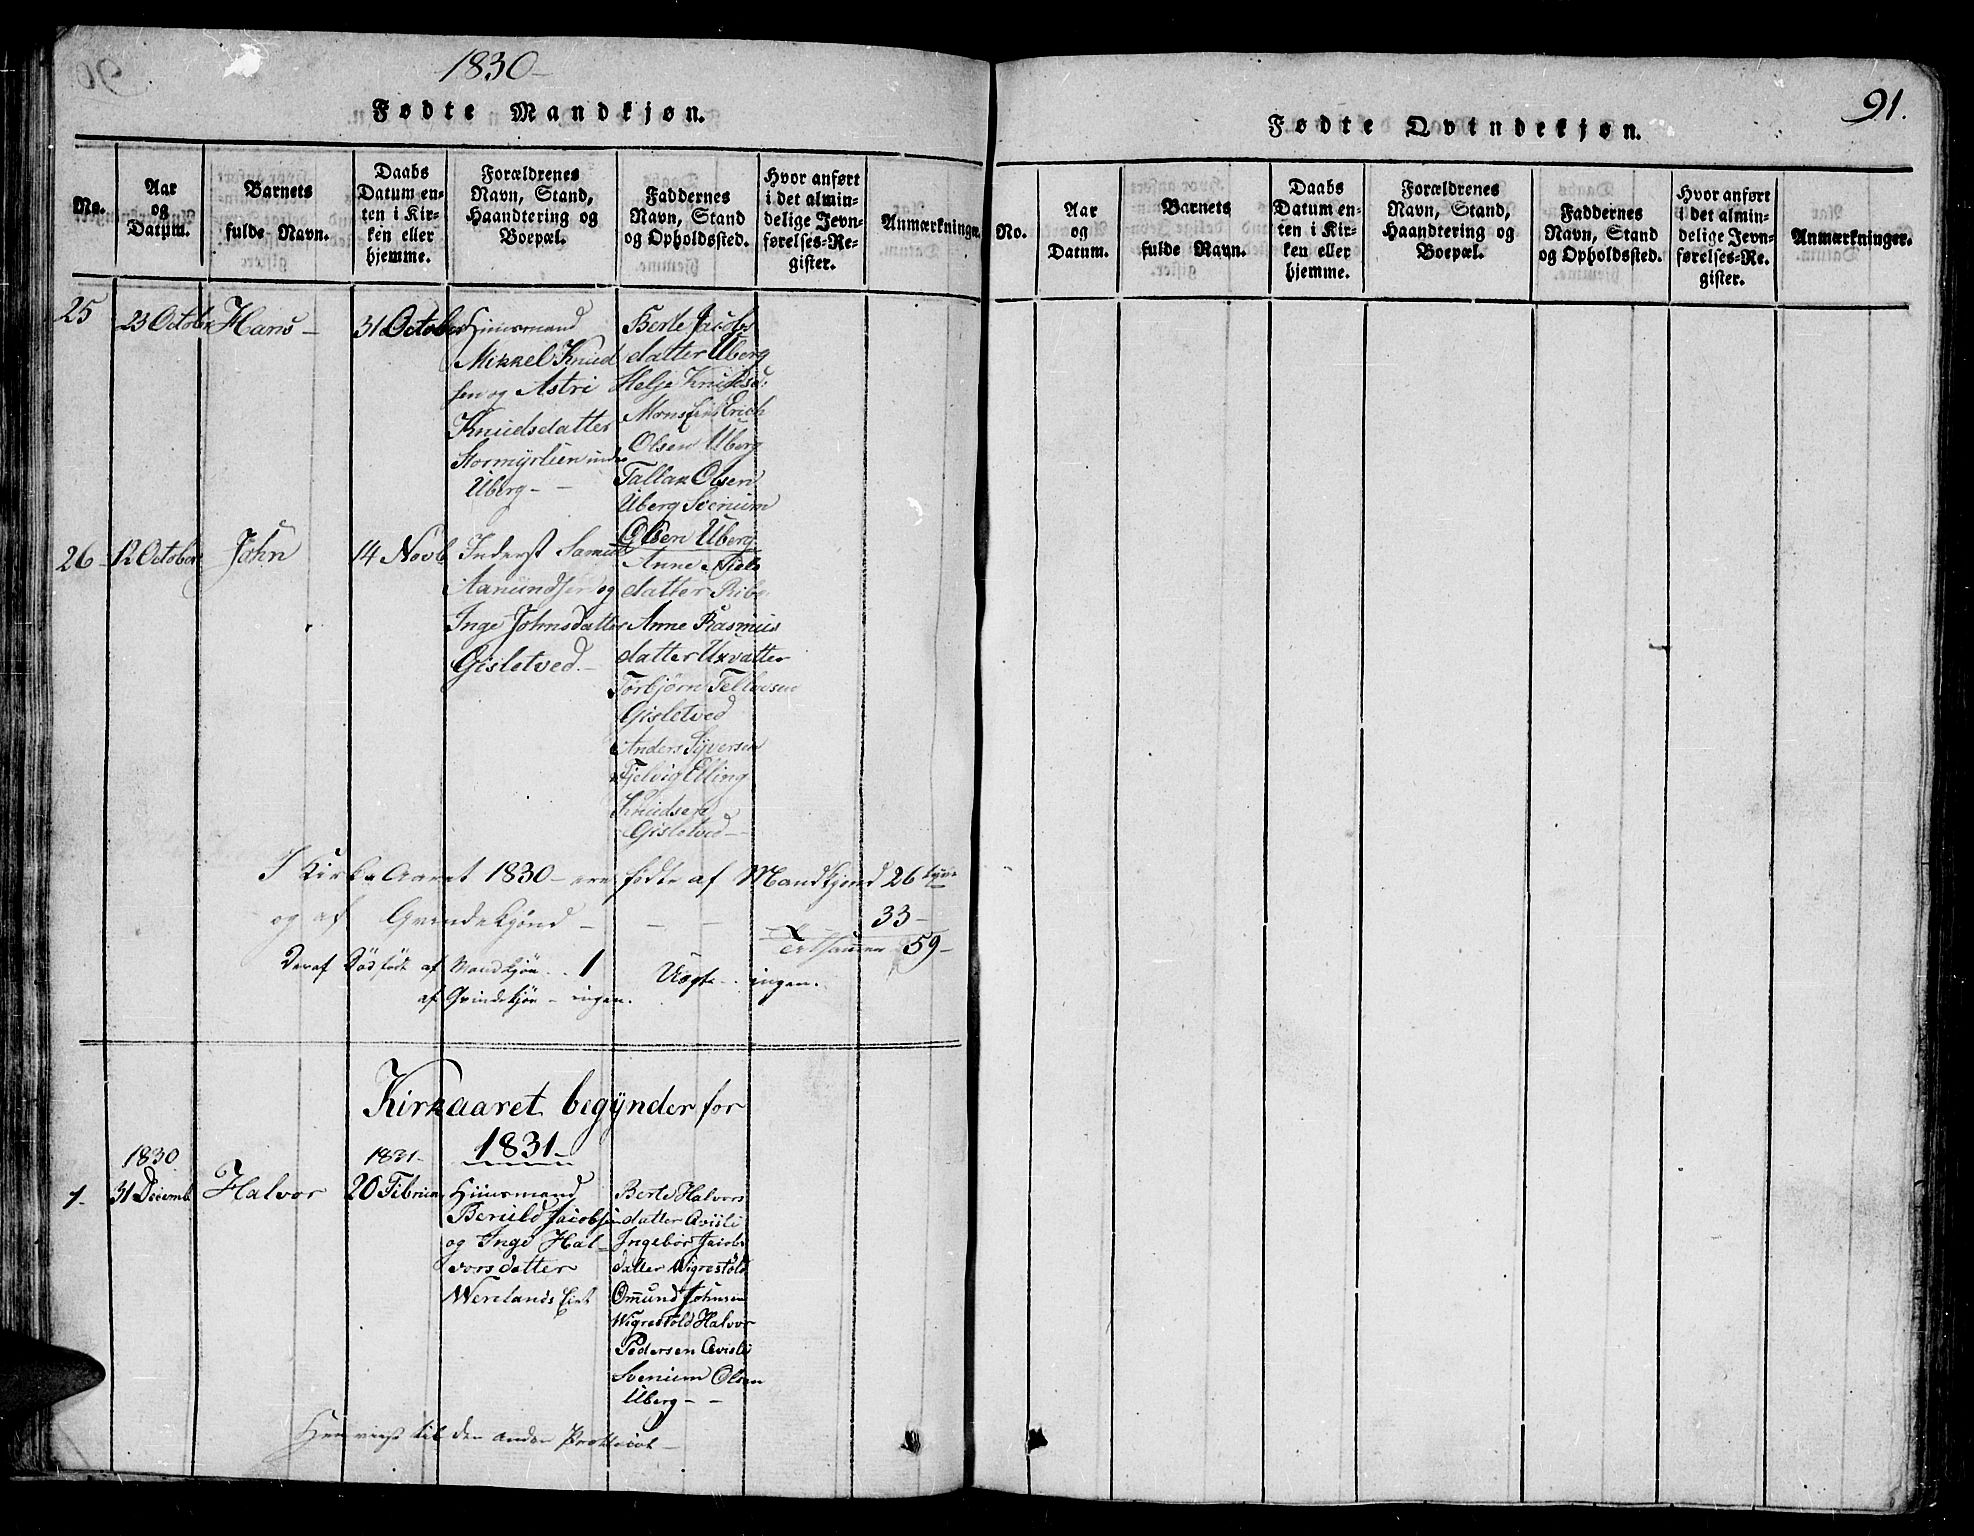 1830
Fødte Mandkjøn.
No.
Aar
og
Datum.
Barnets
fulde Navn.
Daabs
Datum en-
ten i Kir-
ken eller
hjemme.
Forældrenes
Navn, Stand,
Haandtering og
Boepæl.
Faddernes
Navn, Stand
og Opholdssted.
Hvor anført
i det almin-
delige Jevn-
førelses-Re-
gister.
Anmærkninger.
25
23 October
Hans -
31 October
Huusmand
Mikkel Knud
sen og Astri
Knudsdatter
Stormyrlien under
Uberg - -
Berte Jacobs
datter Uberg
Helje Knudsd:
Erich
Olsen Uberg
Tallak Olsen
Uberg Svenum
Olsen Uberg
26 -
12 October
John
14 Novb
Inderst Samuel
Aamundsen og
Inge Johnsdatter
Gisletved -
Anne Niels
datter Ribe
Anne Rasmus
datter Uxvatter
Torbjørn Tellevsen
Gisletved
Anders Syversen
Fjelvig Elling
Knudsen
Gisletved -
I Kirke Aaret 1830 - ere fødte af Mandkjønd 26
og af Qvindekjønd - - - 33 -
Tilsammen 59 -
Deraf Dödfödt af Mandkjön .. 1 Uægte .. ingen.
af Qvindekjön - ingen.
Kirkaaret begynder for
1831 -
1.
1830
31 Decemb
Halvor
1831 -
20 Februar
Huusmand
Beruld Jacobsen
og Inge Hal-
vorsdatter
Werelands Eiet
Berte Halvors
datter Qvisli
Ingebor Jacobs
datter Wigrestöld
Omund Johnsen
Wigrestöld Halvor
Pedersen Qvisli
Svenum Olsen
Uberg - -
Henviist til den anden Protocol -
91.
Fødte Qvindekjøn.
No.
Aar
og
Datum.
Barnets
fulde Navn.
Daabs
Datum en-
ten i Kir-
ken eller
hjemme.
Forældrenes
Navn, Stand,
Haandtering og
Boepæl.
Faddernes
Navn, Stand
og Opholdssted.
Hvor anført
i det almin-
delige Jevn-
førelses-Re-
gister.
Anmærkninger.